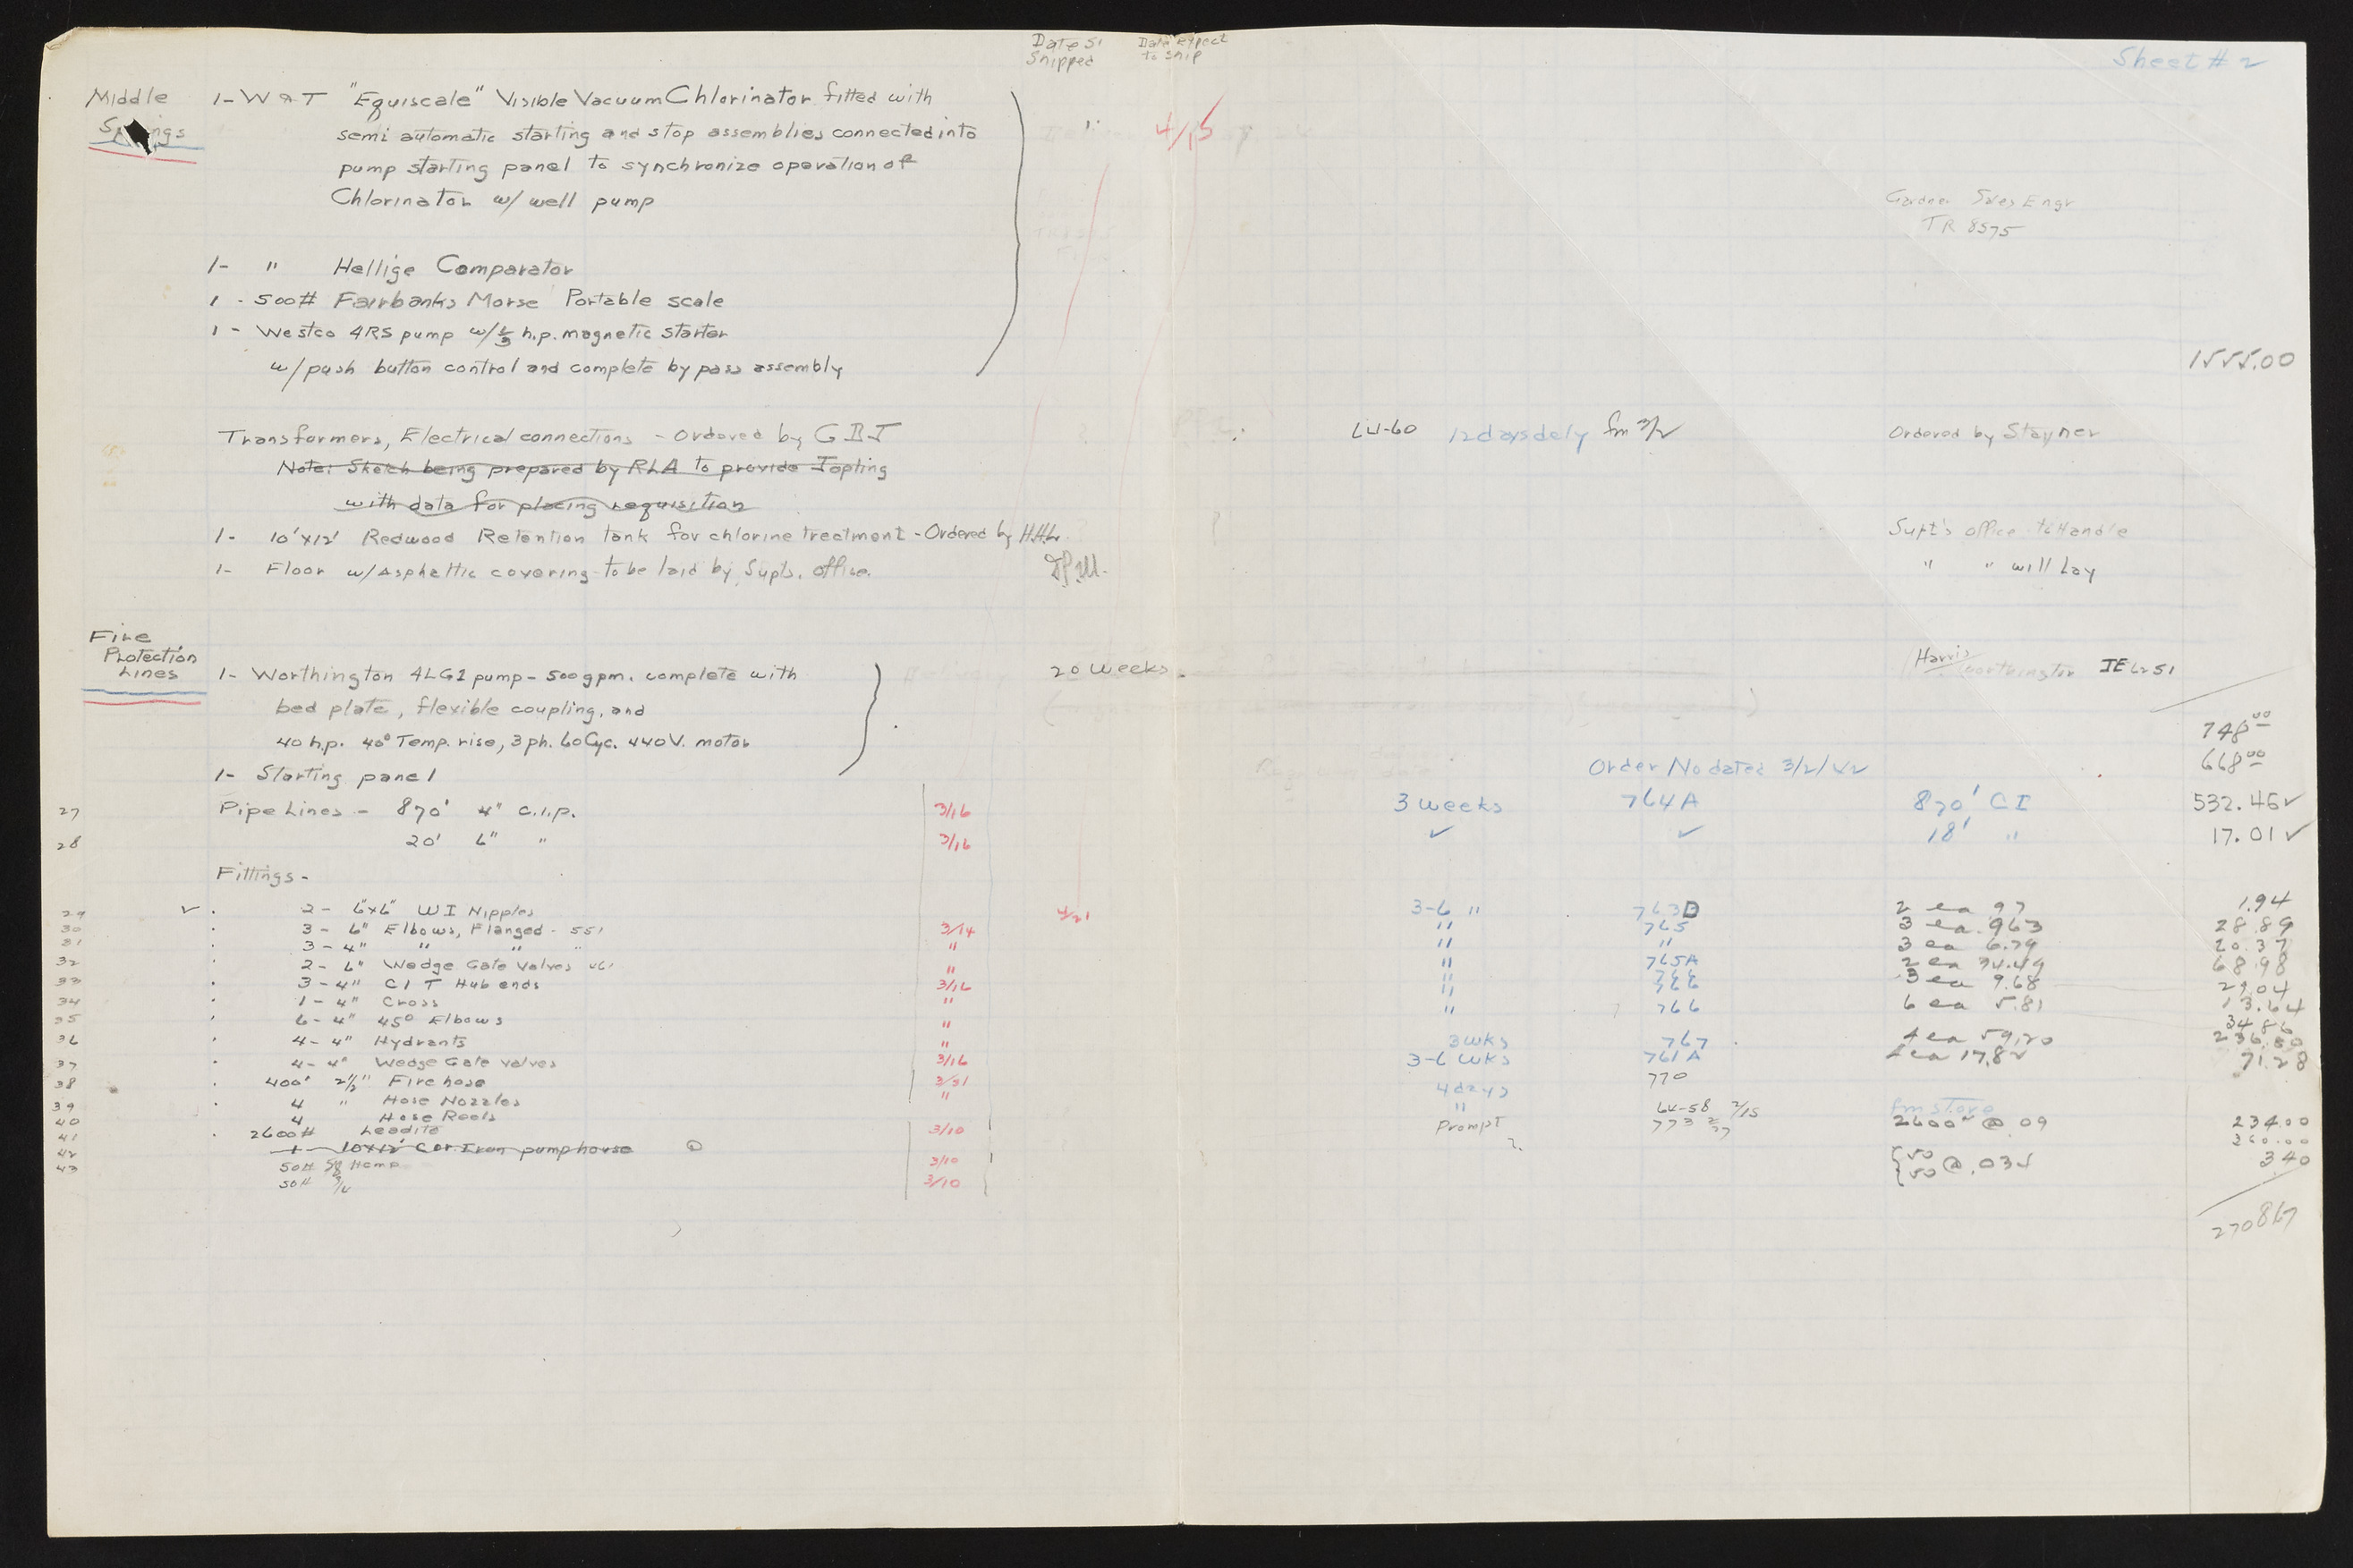 Date Shipped   Date Expect to ship   Sheet # 2
Middle Springs
1- W & T "Equiscale" Visible Vacuum Chlorinator fitted with
semi automatic starting and stop assemblies connected into   4/15
pump starting panel to synchronize operation of
Chlorinator w/ well pump   Gardner Sales Engr
TR 8575
1- " Hellige Comparator
1 - 500# Fairbanks Morse Portable scale
1 - Westco 4RS pump w/ h.p. magnetic starter
w/ push button control and complete by pass assembly   1555.00
Transformers, Electrical connections - Ordered by   LU-60   12 days dely fm 3/2   Ordered by Stayner
Note: Sketch being prepared by RLA to provide Topling
with data for placing requisition
1- 10'x12' Redwood Retention tank for chlorine treatment - Ordered by   Supt's office to Handle
1- Floor w/ Asphaltic covering - to be laid by Supts. office.   " " will Lay
Fire Protection Lines
1- Worthington pump - 500 gpm. complete with   20 weeks   Harris Worthington
bed plate, flexible coupling, and
40 h.p. 40° Temp. rise, 3 ph. 60 Cyc. 440 V. motor   748 00
1- Starting panel   Order No dated 3/2/42   668 00
27   Pipe Lines - 870' 4" C.I.P.   3/16   3 weeks   764A   870' CI   532.46 ✓
28   20' 6" "   3/16   ✓   ✓   18' "   17.01 ✓
Fittings -
29 ✓   2- 6"x6" WI Nipples   4/21   3-6 "   763D   2 ea 97   1.94
30   3- 6" Elbows, Flanged - 551   3/14   "   765   3 ea. 963   28.89
31   3- 4" " "   "   "   "   3 ea 6.79   20.37
32   2- 6" Wedge Gate Valves   "   "   765A   2 ea 34.49   68.98
33   3- 4" C I T Hub ends   3/16   "   766   3 ea 9.68   29.04
34   1- 4" Cross   "   "   13.64
35   6- 4" 45° Elbows   "   "   766   6 ea 5.81   34.86
36   4- 4" Hydrants   "   3 wks   767   4 ea 59.20   236.80
37   4- 4" Wedge Gate valves   3/16   3-6 wks   761A   4 ea 17.82   71.28
38   400' 2½" Fire hose   3/31   4 days   770
39   4 " Hose Nozzles   "   "
40   4 Hose Reels   64-58 2/15   fm store
41   2600# Leadite   3/10   Prompt   773   2600 @ .09   234.00
42   1- 10x12' Cor Iron pumphouse   ?   360.00
43   50# Hemp   3/10   50 @ .03   340
50#   3/10   50
270867